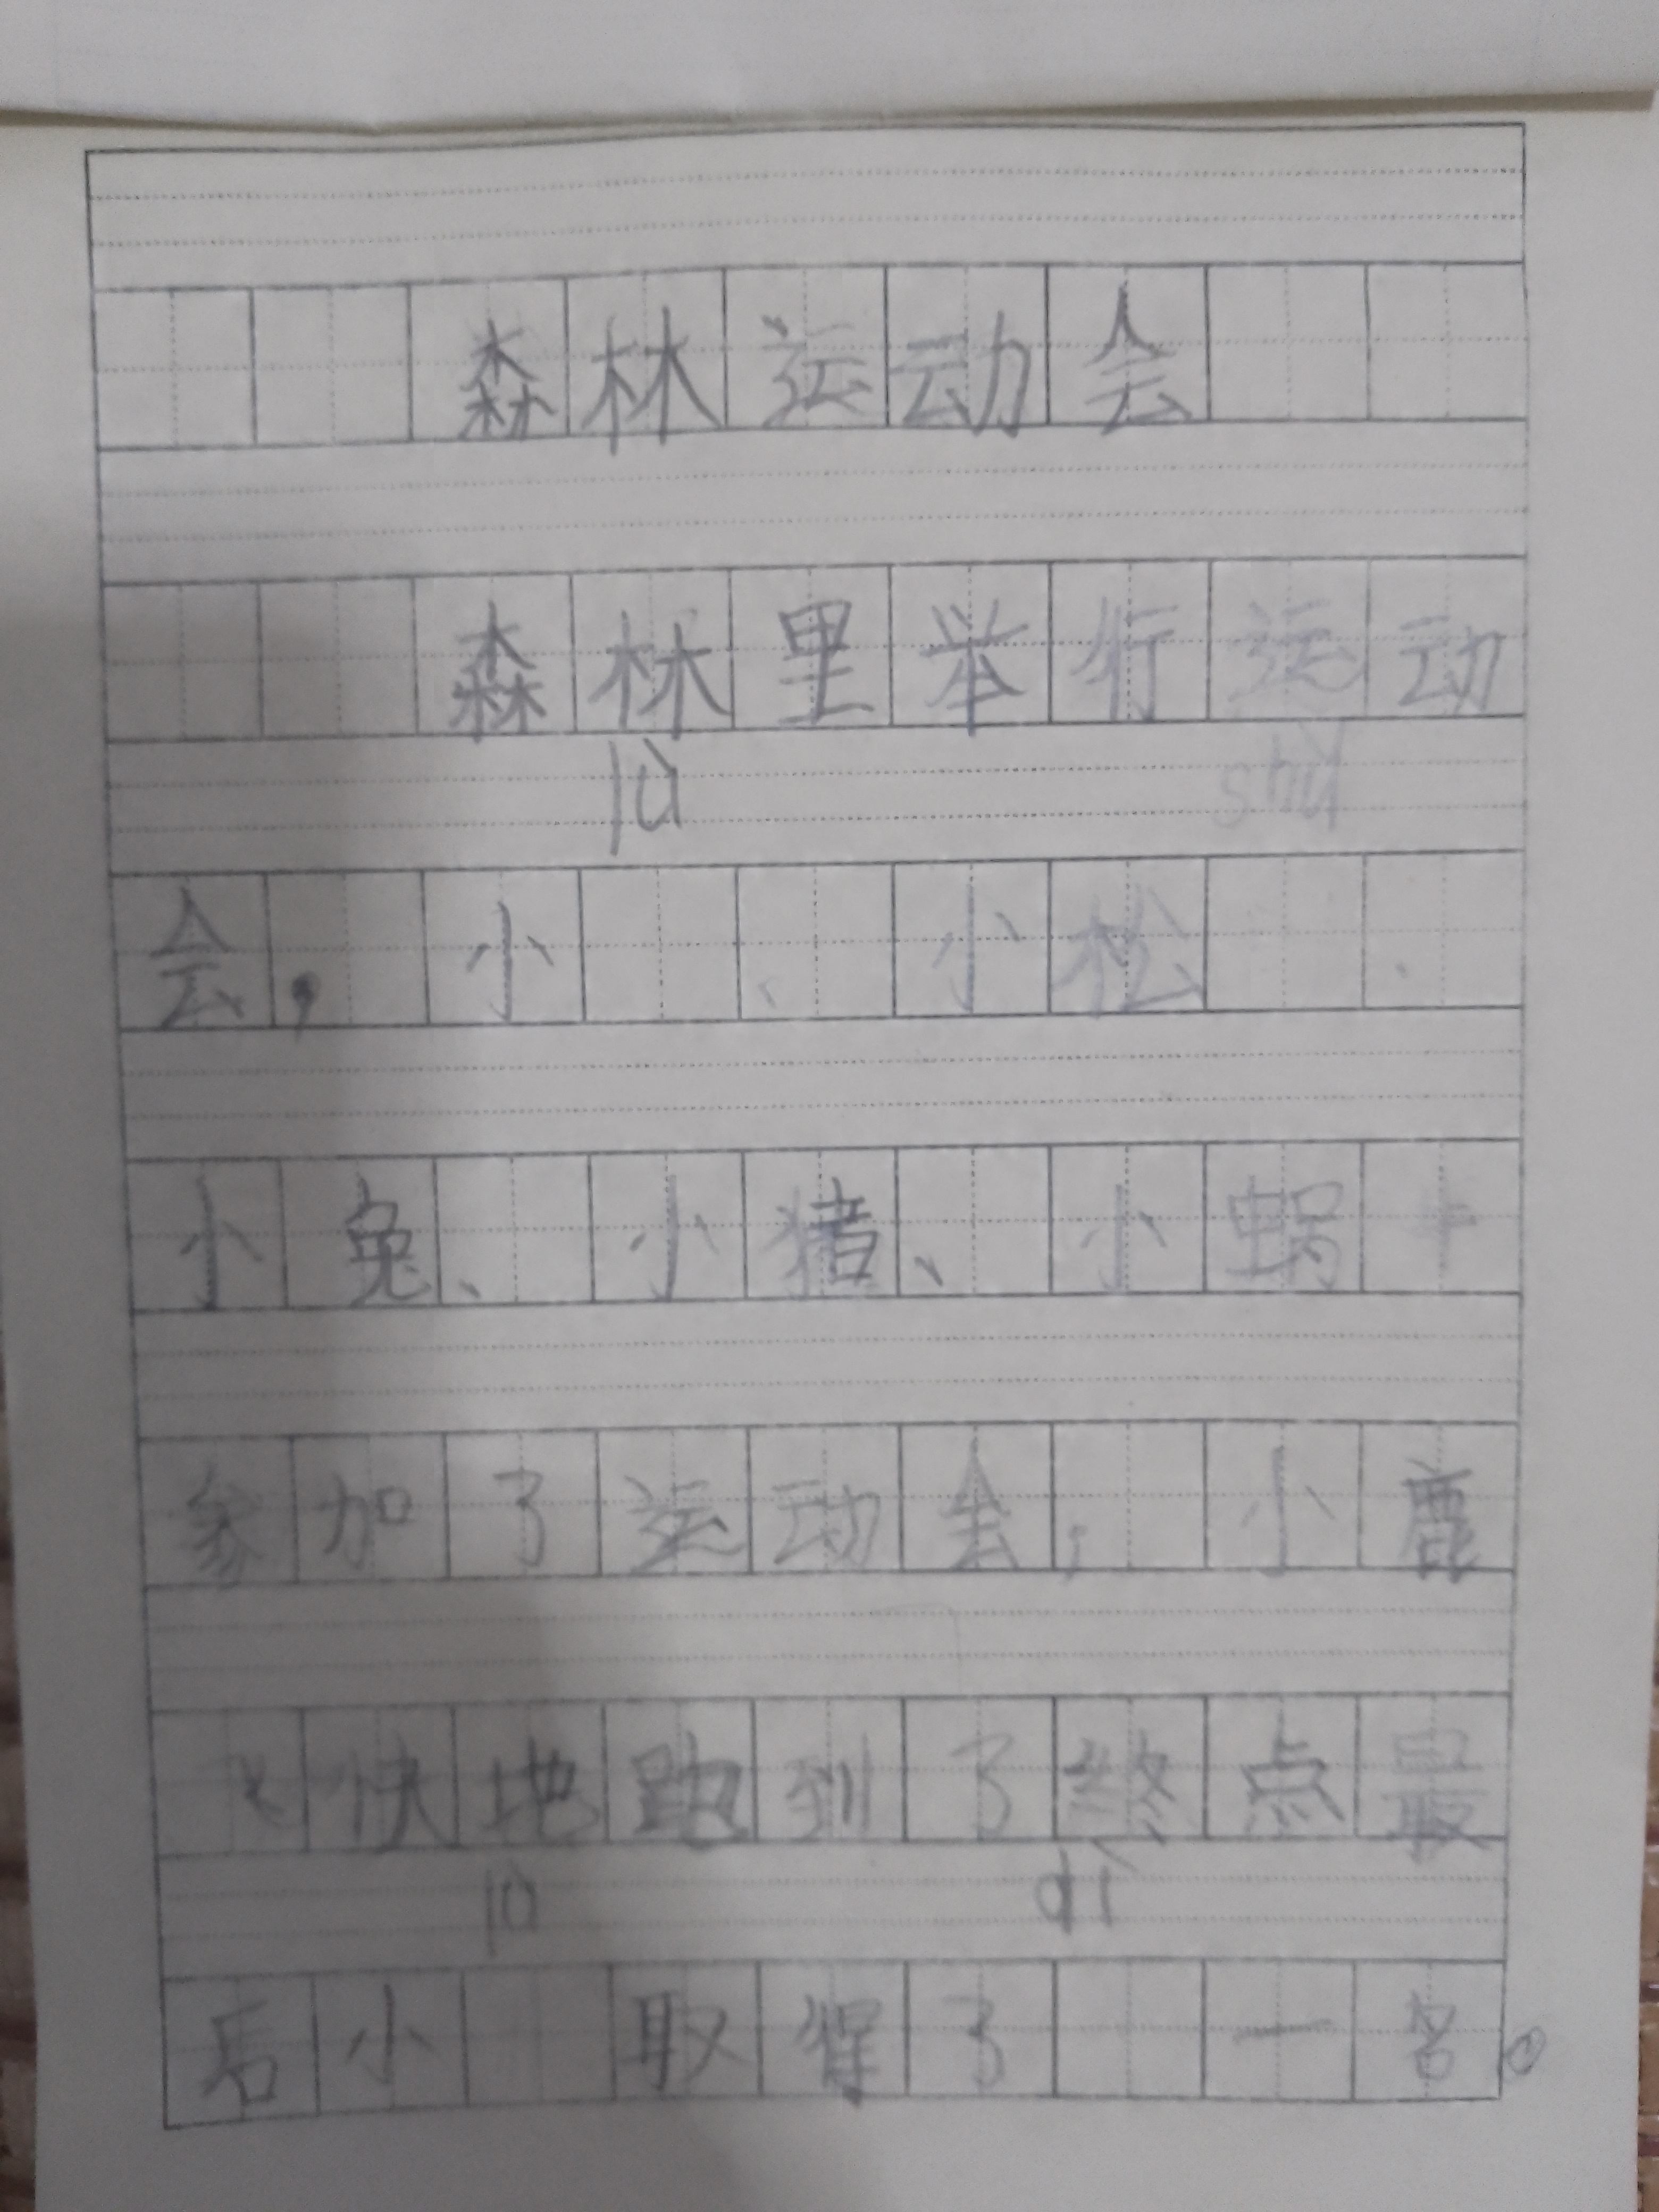 森林运动会
森林里举行运动
lù shǔ
会，小 、小松 、
小兔、小猪、小蜗牛
参加了运动会，小鹿
飞快地跑到了终点最
lù dì
后小 取得了 一名。